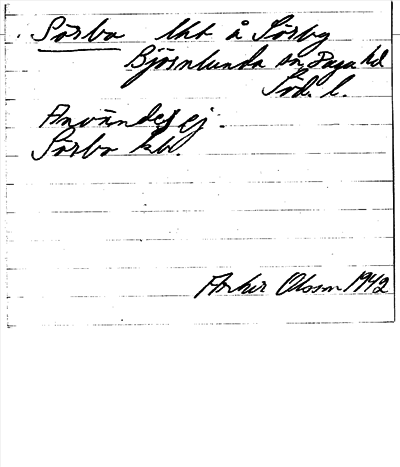 Sörbo lht å Sörby
Björnlunda sn, Daga hd
Söd. l.
Användes ej.
Sörbo kbl.
Arkiv Olsson 1942